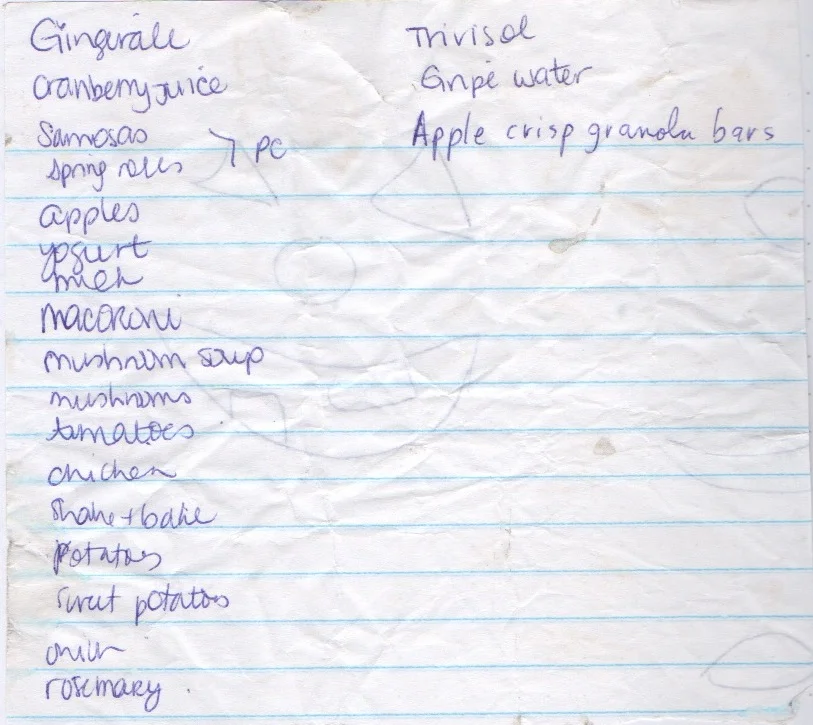 Gingerale
Cranberry juice
Samosas
Spring rolls
PC
apples
yogurt
milk
macaroni
mushroom soup
mushrooms
tomatoes
chicken
Shake + bake
Potatoes
sweet potatoes
onion
rosemary
Trivisol
Gripe water
Apple crisp granola bars